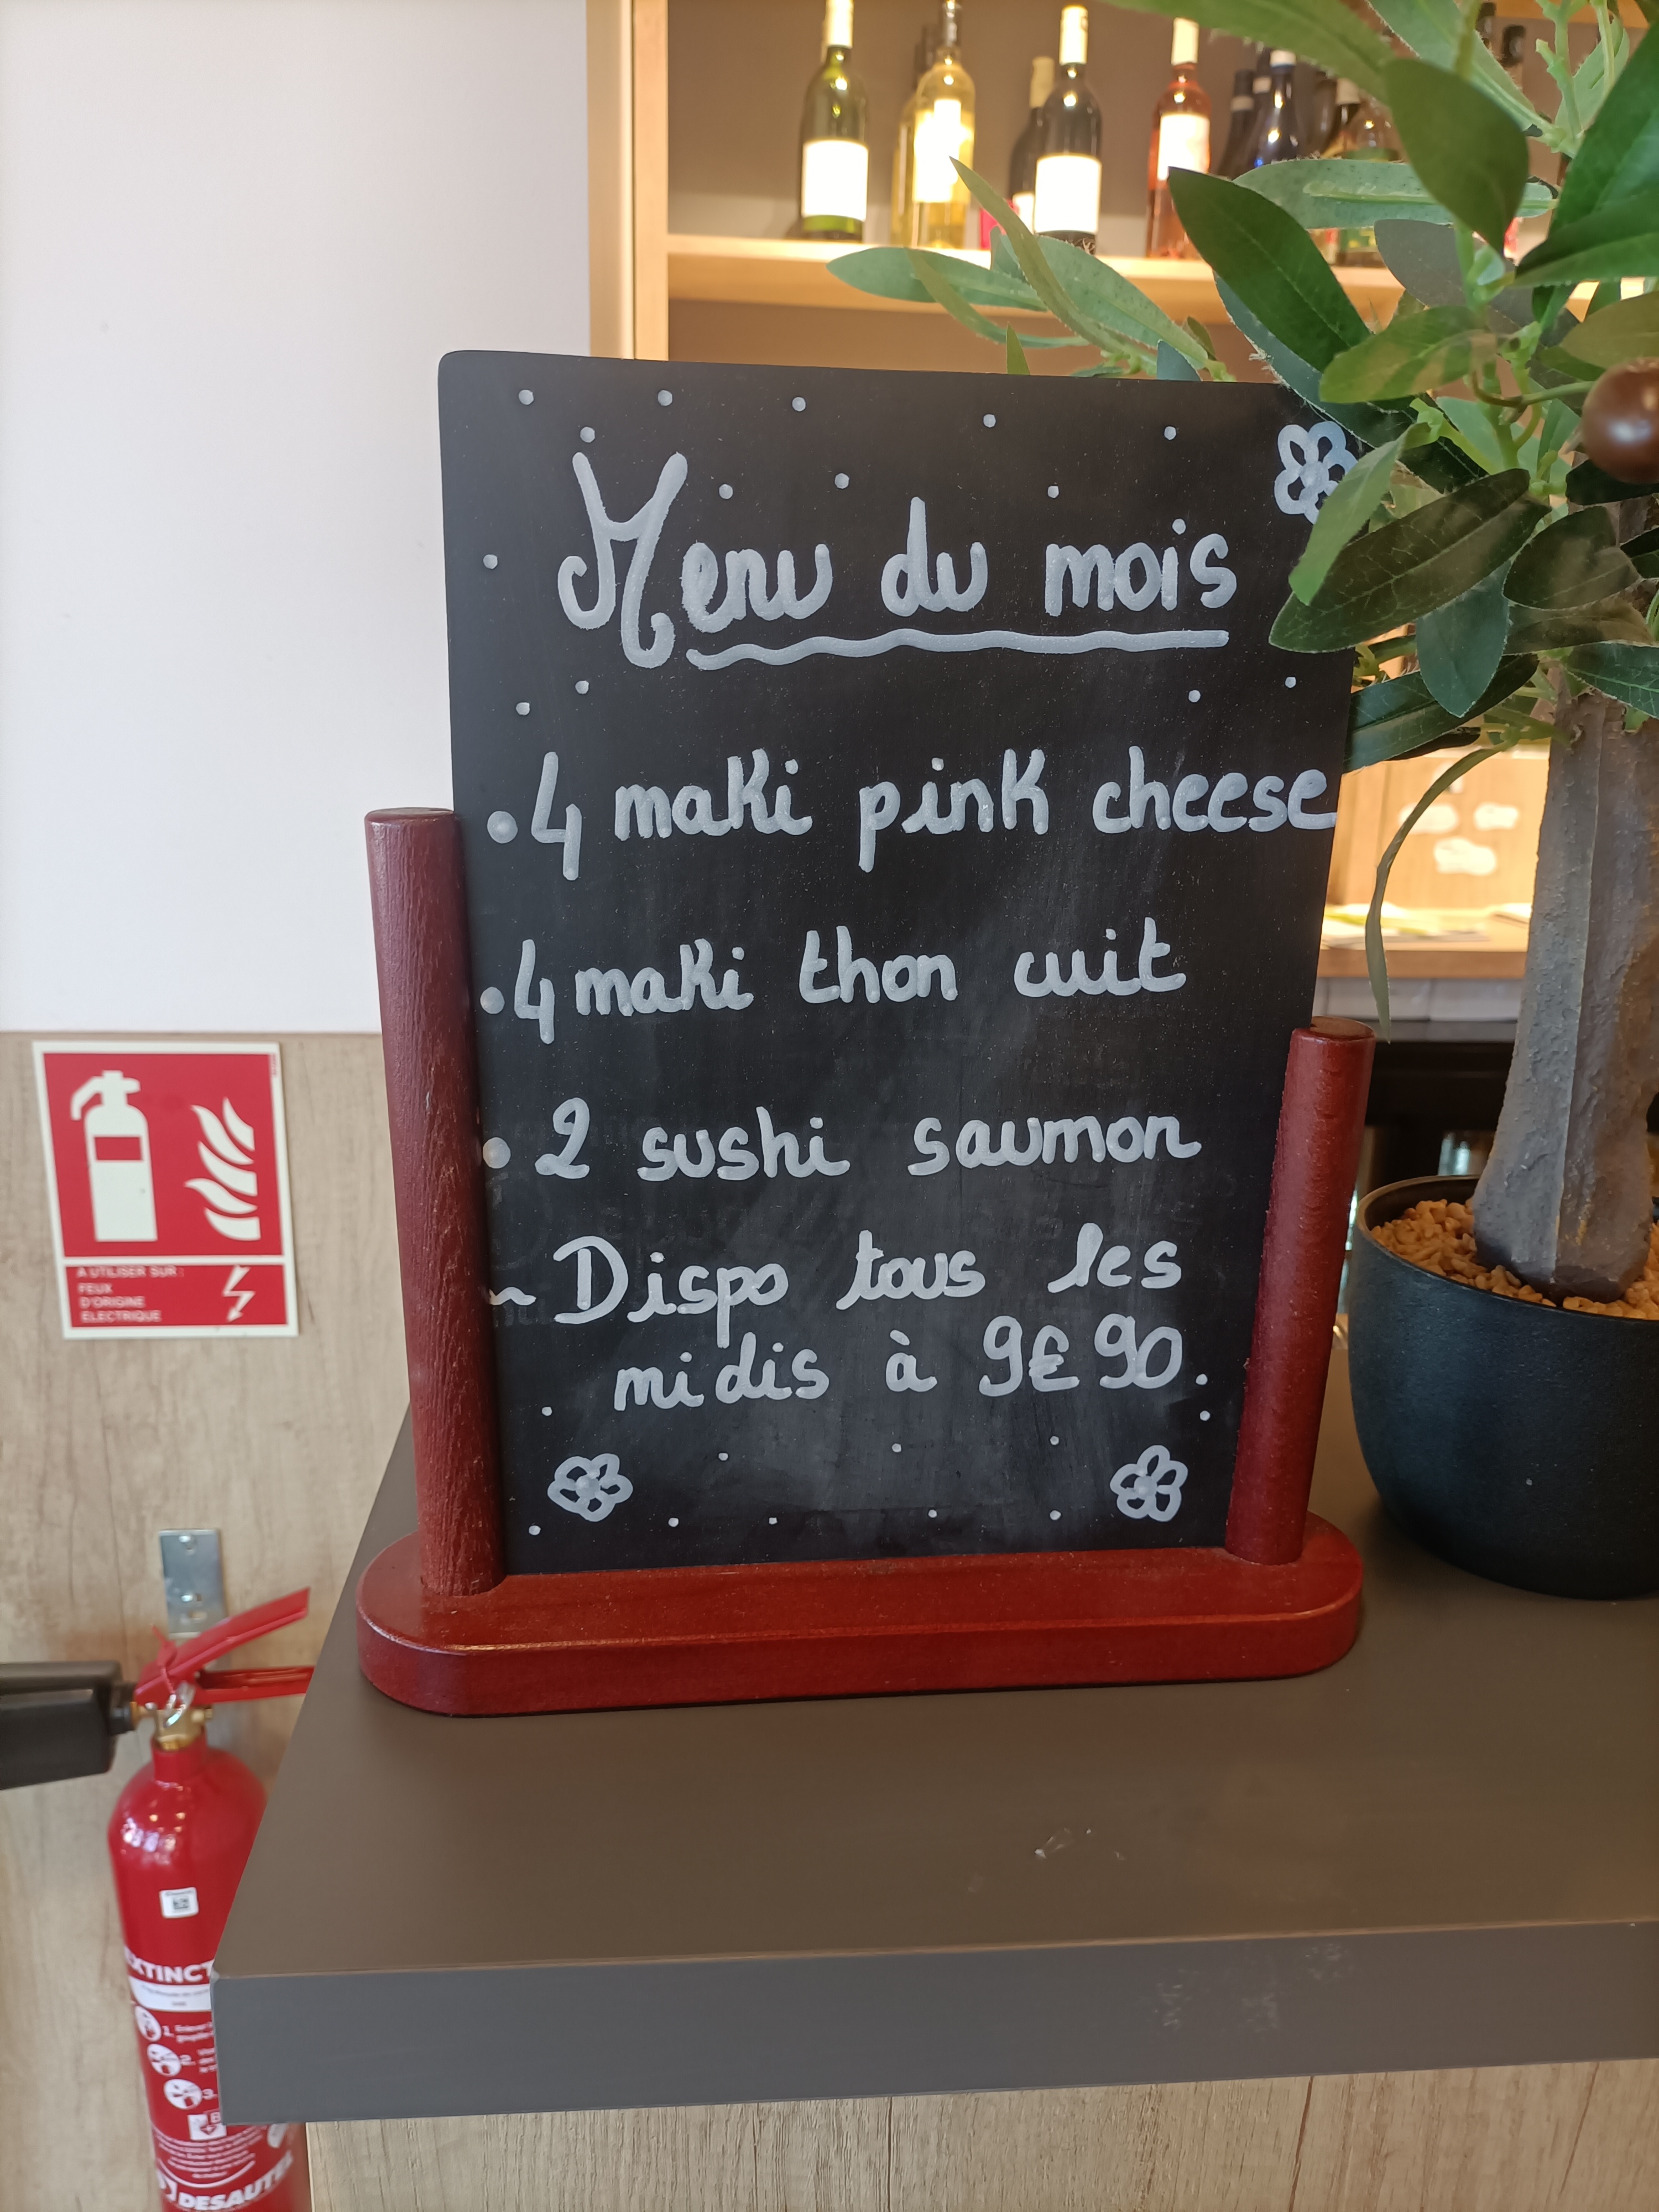 Menu du mois
• 4 maki pink cheese
• 4 maki thon cuit
• 2 sushi saumon
~ Dispo tous les
midis à 9€90.
A UTILISER SUR :
FEUX
D'ORIGINE
ELECTRIQUE
EXTINCT
1.
2.
3.
DESAUTEL